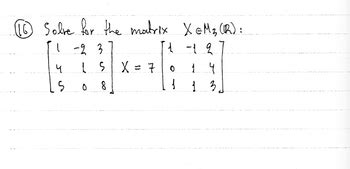 (16) Solve for the matrix X ∈ M₃(ℝ):
[1 -2 3; 4 1 5; 5 0 8] X = 7 [1 -1 2; 0 1 4; 1 1 3]